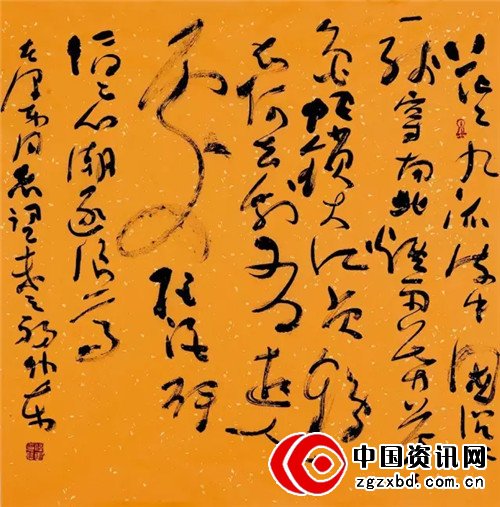 茫茫九派流中國沉沉
一线穿南北煙雨莽苍苍
龟蛇锁大江黄鹤
知何去剩有遊人
处
把酒酹
滔滔心潮逐浪高
毛泽东同志词
中国资讯网
zgzxbd.com.cn